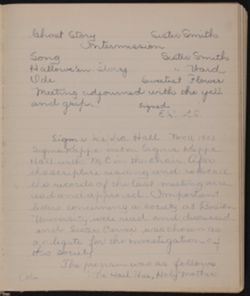 Ghost Story Sister Smith
Intermission
Song Sister Smith
Hallowe'en Story " Ward
Ode Sweetest Flower
Meeting adjourned with the yell
and grip.
Signed
Sigma Hall Nov
Sigma Kappa met in Sigma Kappa
Hall with in the chair. After
the scripture reading and roll call
the records of the last meeting were
read and approved. Important
letters concerning a society at Boston
University were read and discussed
and Sister was chosen as
a delegate for the investigation of
this society.
The program was as follows
Ode Hail thee, Holy Mother